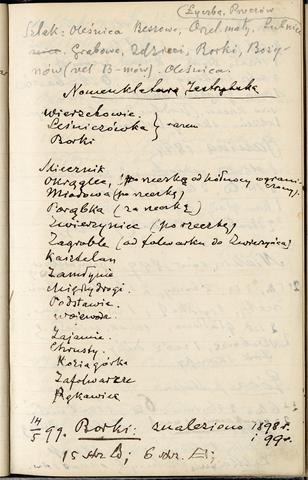 (Życba, Pruców
Szlak: Oleśnica Bessowo, Orzeł mały,
Grabowa, Zdzieci, Borki, Bosy-
nów (vel B-mów). Oleśnica.
Nomenklatura Zestrytaka
Wierzchowie
Leśniczówka } razem
Borki
Miecznik
Okrąglec, (po rzeczkę od północy ograni-
czony)
Miodowa (po rzeczkę)
Porąbka (za rzeczką)
Zwierzyniec (po rzeczkę)
Zagroble (od folwarku do Zwierzyńca)
Kasztelan
Zamłynie
Międzydrogi.
Podstawie.
Wojewoda.
Zajamie.
Chrusty.
Kozia górka
Zafolwarcze
Rękawica
14/5 99. Borki: znaleziono 1898 r.
i 99 r.
15 str. ; 6 str. ;